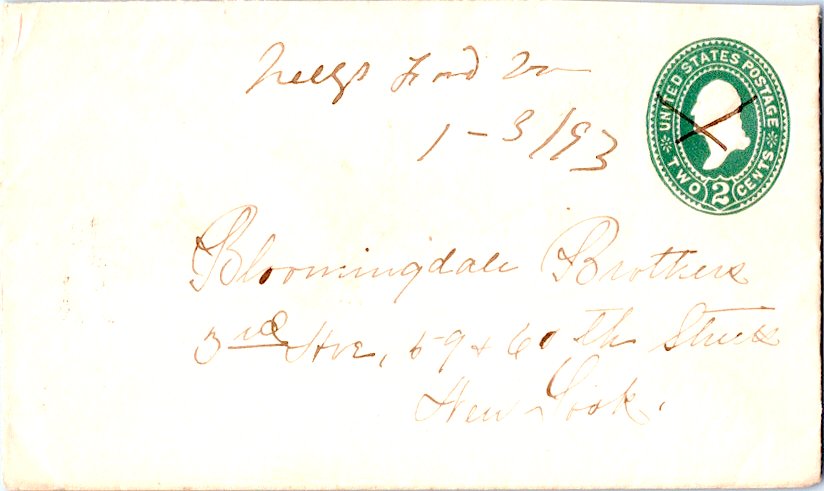 Nellys Ford Va
1-3/93
UNITED STATES POSTAGE
TWO 2 CENTS
Bloomingdale Brothers
3rd Ave, 59 & 60th Streets
New York.